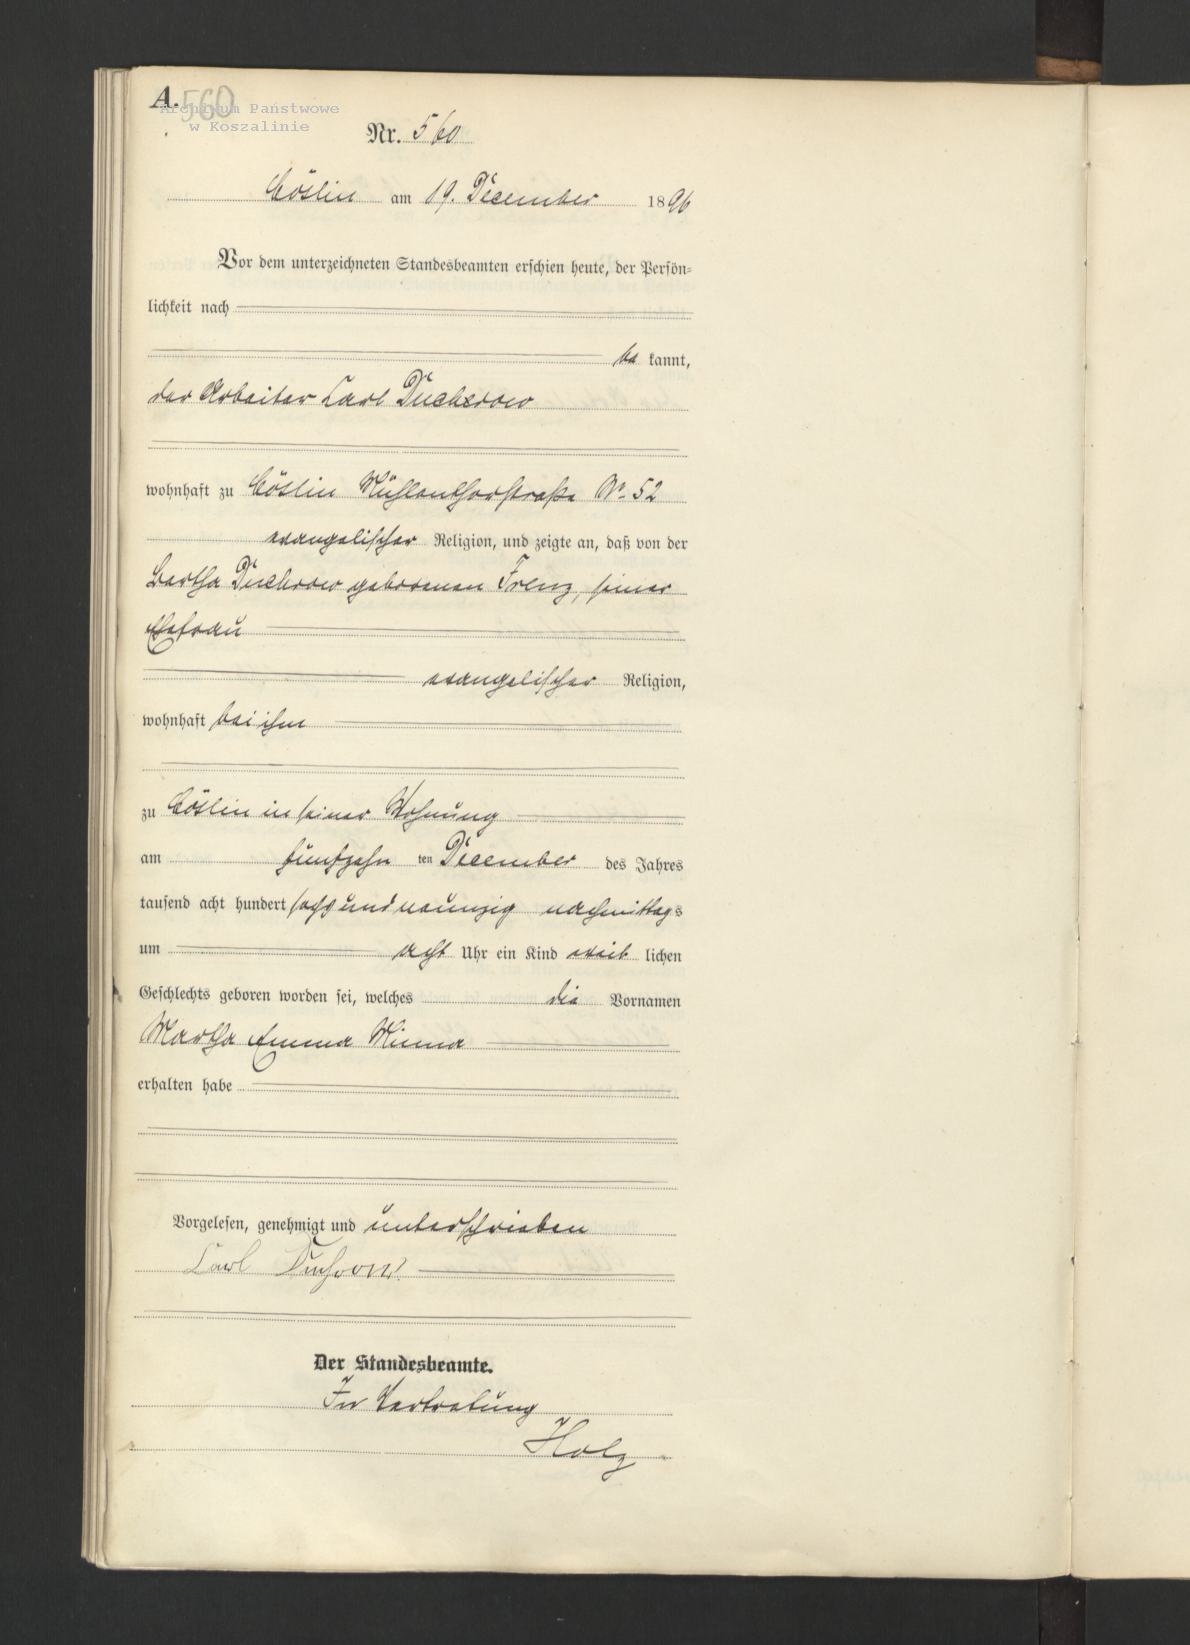 A. 560
Archiwum Państwowe
w Koszalinie
Nr. 560
Cöslin am 19. December 1896
Vor dem unterzeichneten Standesbeamten erschien heute, der Persön-
lichkeit nach
be kannt,
der Arbeiter Carl Ducherow
wohnhaft zu Cöslin Mühlenthorstraße No 52
evangelischer Religion, und zeigte an, daß von der
Bertha Duchrow geborenen Frenz, seiner
Ehefrau
evangelischer Religion,
wohnhaft bei ihm
zu Cöslin in seiner Wohnung
am fünfzehn ten December des Jahres
tausend acht hundert sechs und neunzig nachmittags
um acht Uhr ein Kind weib lichen
Geschlechts geboren worden sei, welches die Vornamen
Martha Emma Minna
erhalten habe
Vorgelesen, genehmigt und unterschrieben
Carl Duchrow
Der Standesbeamte.
In Vertretung
Holz